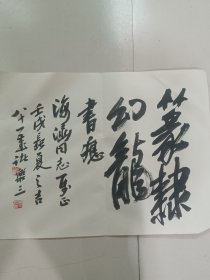 篆隸
幻龍
書癮
海涵同志屬正
壬戌長夏之吉
八十一叟諸樂三